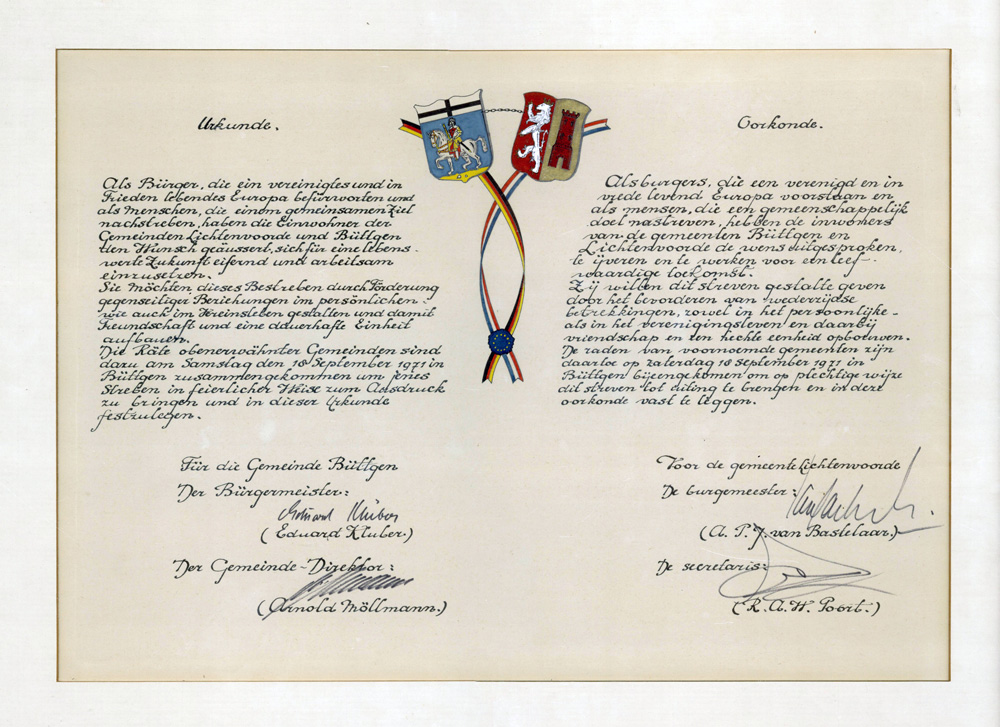 Urkunde.
Als Bürger, die ein vereinigtes und in
Frieden lebendes Europa befürworten und
als Menschen, die einem gemeinsamen Ziel
nachstreben, haben die Einwohner der
Gemeinden Lichtenvoorde und Büttgen
den Wunsch geäussert, sich für eine lebens-
werte Zukunft eifernd und arbeitsam
einzusetzen.
Sie möchten, dieses Bestreben durch Förderung
gegenseitiger Beziehungen im persönlichen-
wie auch im Vereinsleben gestalten und damit
Freundschaft und eine dauerhafte Einheit
aufbauen.
Die Räte obenerwähnter Gemeinden sind
dazu am Samstag den 18 September 1971 in
Büttgen zusammengekommen um jenes
Streben in feierlicher Weise zum Ausdruck
zu bringen und in dieser Urkunde
festzulegen.
Für die Gemeinde Büttgen
Der Bürgermeister:
(Eduard Kluber.)
Der Gemeinde-Direktor:
(Arnold Möllmann.)
Oorkonde.
Als burgers, die een verenigd en in
vrede levend Europa voorstaan en
als mensen, die een gemeenschappelijk
doel nastreven, hebben de inwoners
van de gemeenten Büttgen en
Lichtenvoorde de wens uitgesproken,
te ijveren en te werken voor een leef-
waardige toekomst.
Zij willen dit streven gestalte geven
door het bevorderen van wederzijdse
betrekkingen, zowel in het persoonlijke-
als in het verenigingsleven en daarbij
vriendschap en een hechte eenheid opbouwen.
De raden van voornoemde gemeenten zijn
daartoe op zaterdag 18 September 1971 in
Büttgen bijeengekomen om op plechtige wijze
dit streven tot uiting te brengen en in deze
oorkonde vast te leggen.
Voor de gemeente Lichtenvoorde
De burgemeester:
(A. P. J. van Bastelaar.)
De secretaris:
(R. A. H. Poort.)